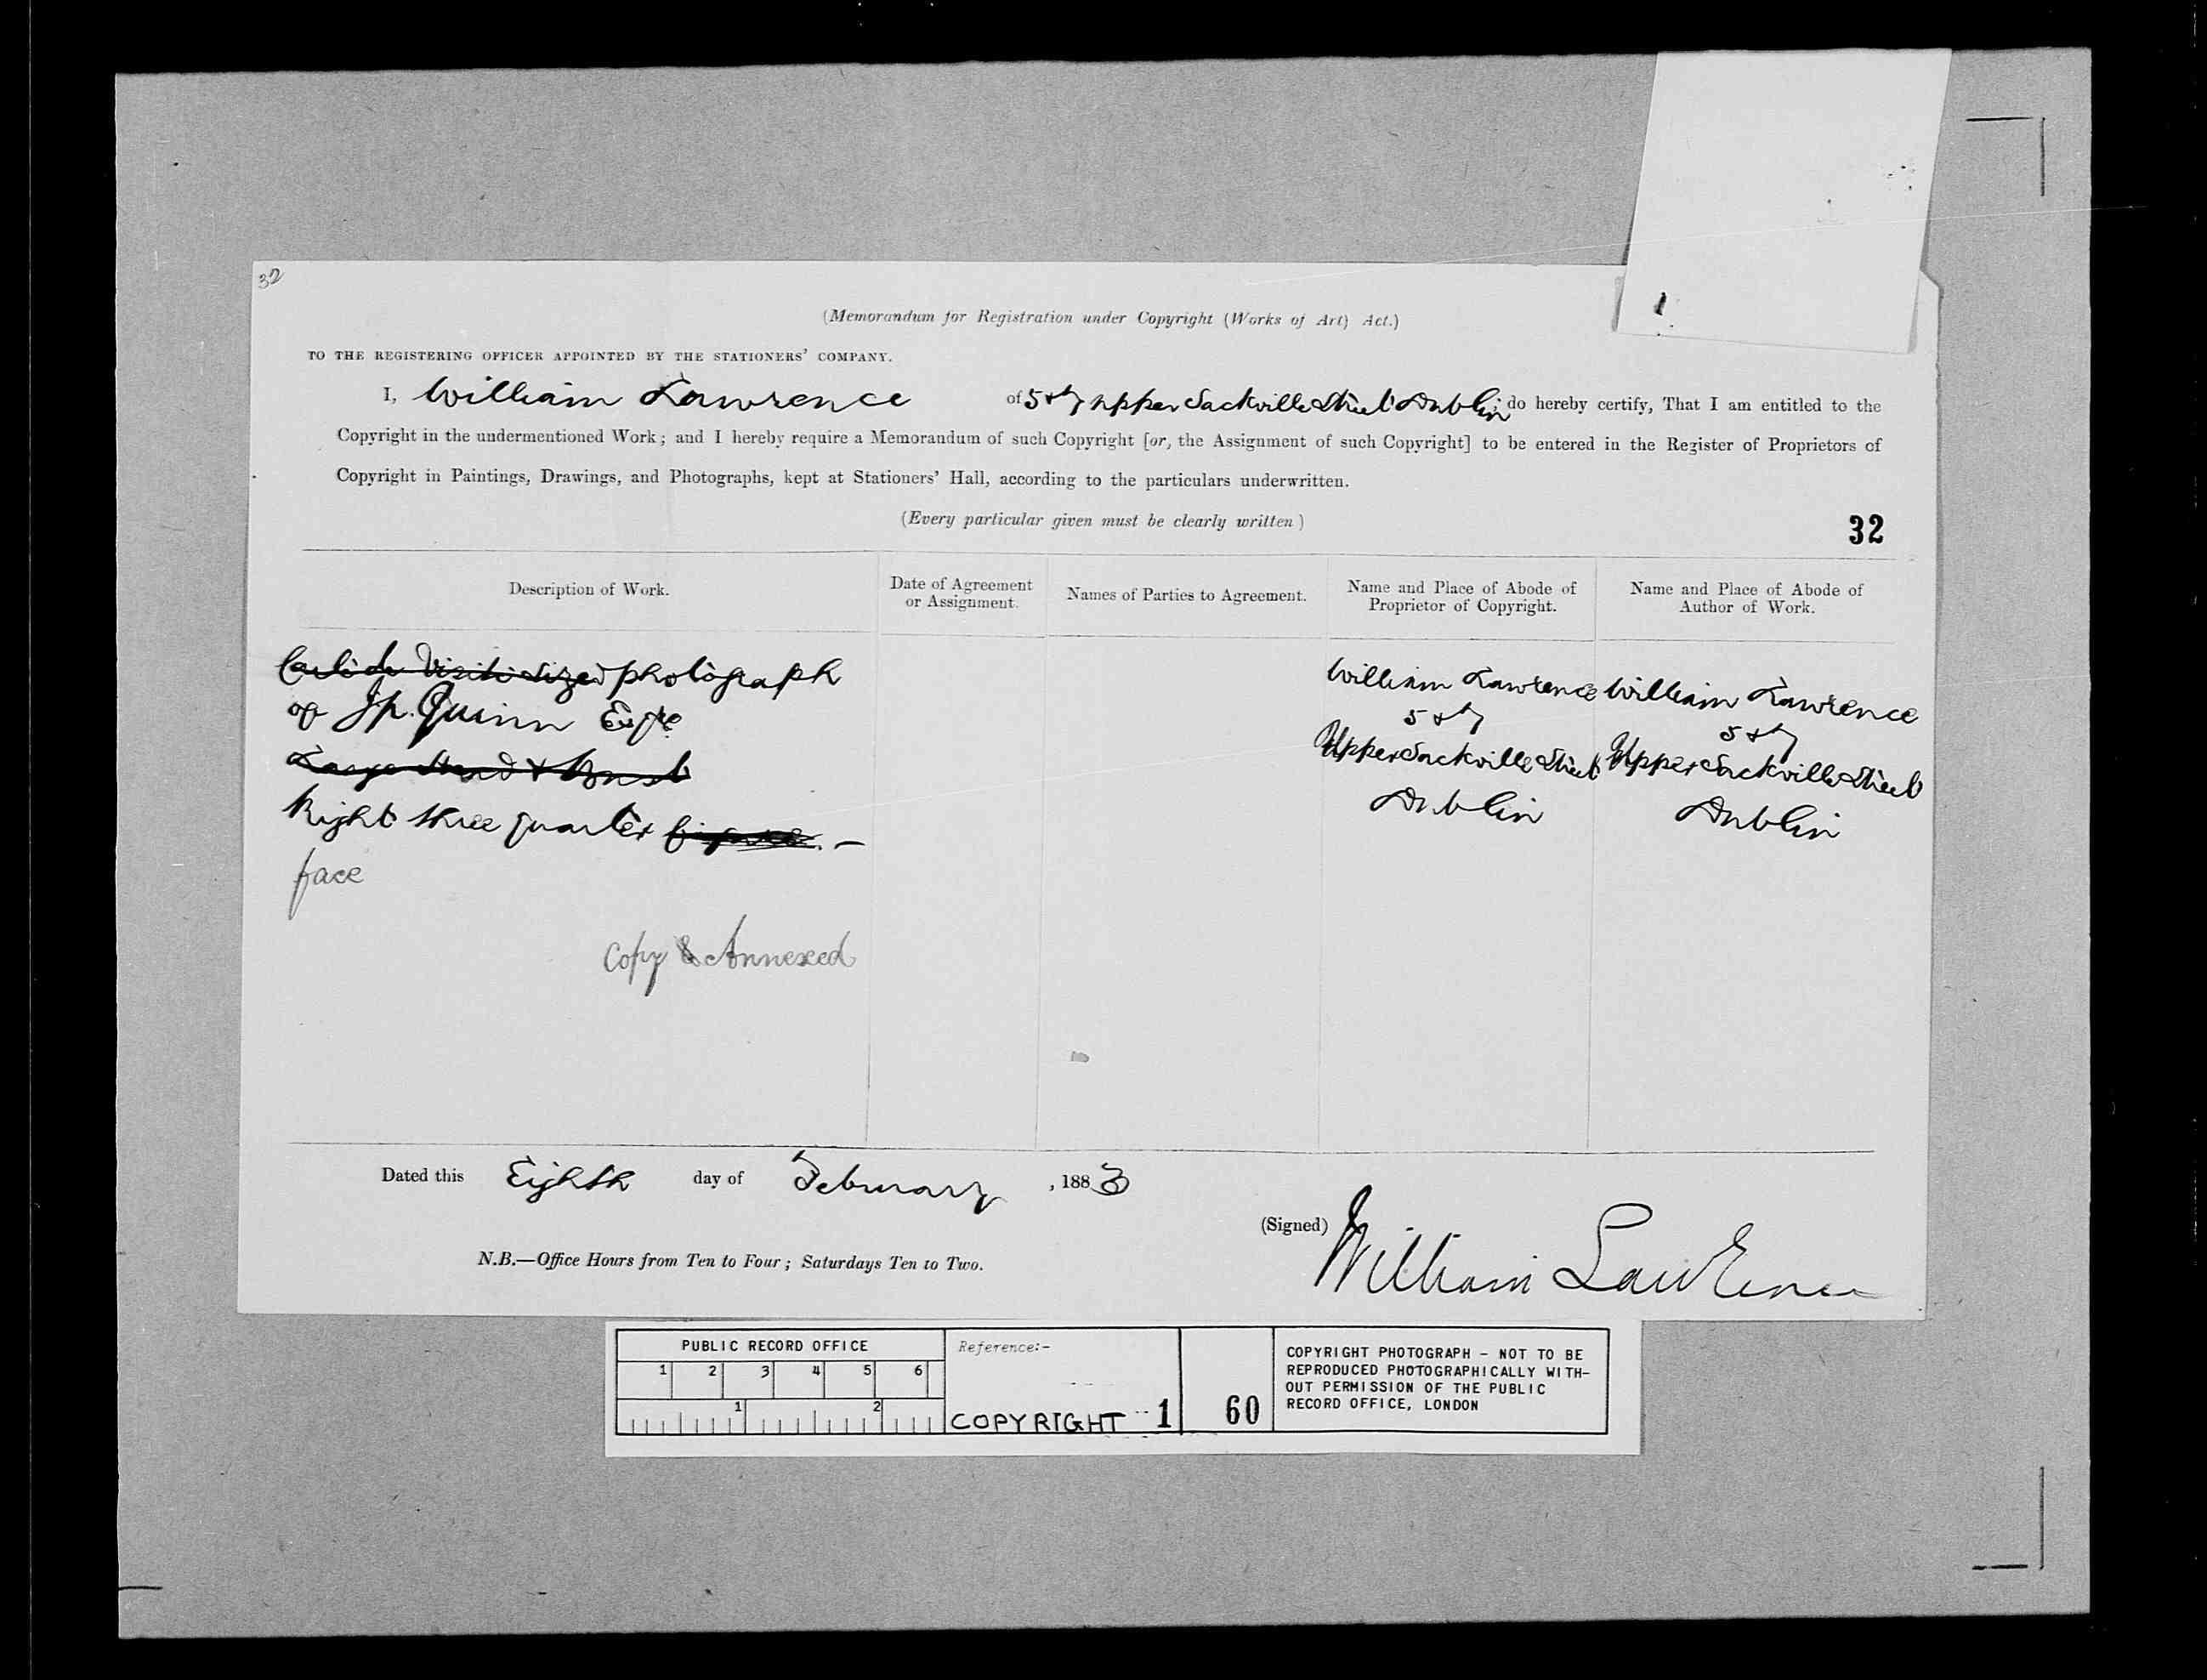 32
(Memorandum for Registration under Copyright (Works of Art) Act.)
TO THE REGISTERING OFFICER APPOINTED BY THE STATIONERS' COMPANY.
I, William Lawrence of 5 & 7 Upper Sackville Street Dublin; do hereby certify, That I am entitled to the
Copyright in the undermentioned Work; and I hereby require a Memorandum of such Copyright [or, the Assignment of such Copyright] to be entered in the Register of Proprietors of
Copyright in Paintings, Drawings, and Photographs, kept at Stationers' Hall, according to the particulars underwritten.
(Every particular given must be clearly written)
32
Description of Work.
Date of Agreement
or Assignment.
Names of Parties to Agreement.
Name and Place of Abode of
Proprietor of Copyright.
Name and Place of Abode of
Author of Work.
Carte de Visite sized photograph
of J.P. Quinn Esqre
Large Head & Bust
Right three quarter figure. —
face
Copy & Annexed
William Lawrence
5 & 7
Upper Sackville Street
Dublin
William Lawrence
5 & 7
Upper Sackville Street
Dublin
Dated this Eighth day of February, 1883
(Signed) William Lawrence
N.B.—Office Hours from Ten to Four; Saturdays Ten to Two.
PUBLIC RECORD OFFICE
1 2 3 4 5 6
1 2
Reference:-
COPYRIGHT 1 60
COPYRIGHT PHOTOGRAPH - NOT TO BE
REPRODUCED PHOTOGRAPHICALLY WITH-
OUT PERMISSION OF THE PUBLIC
RECORD OFFICE, LONDON